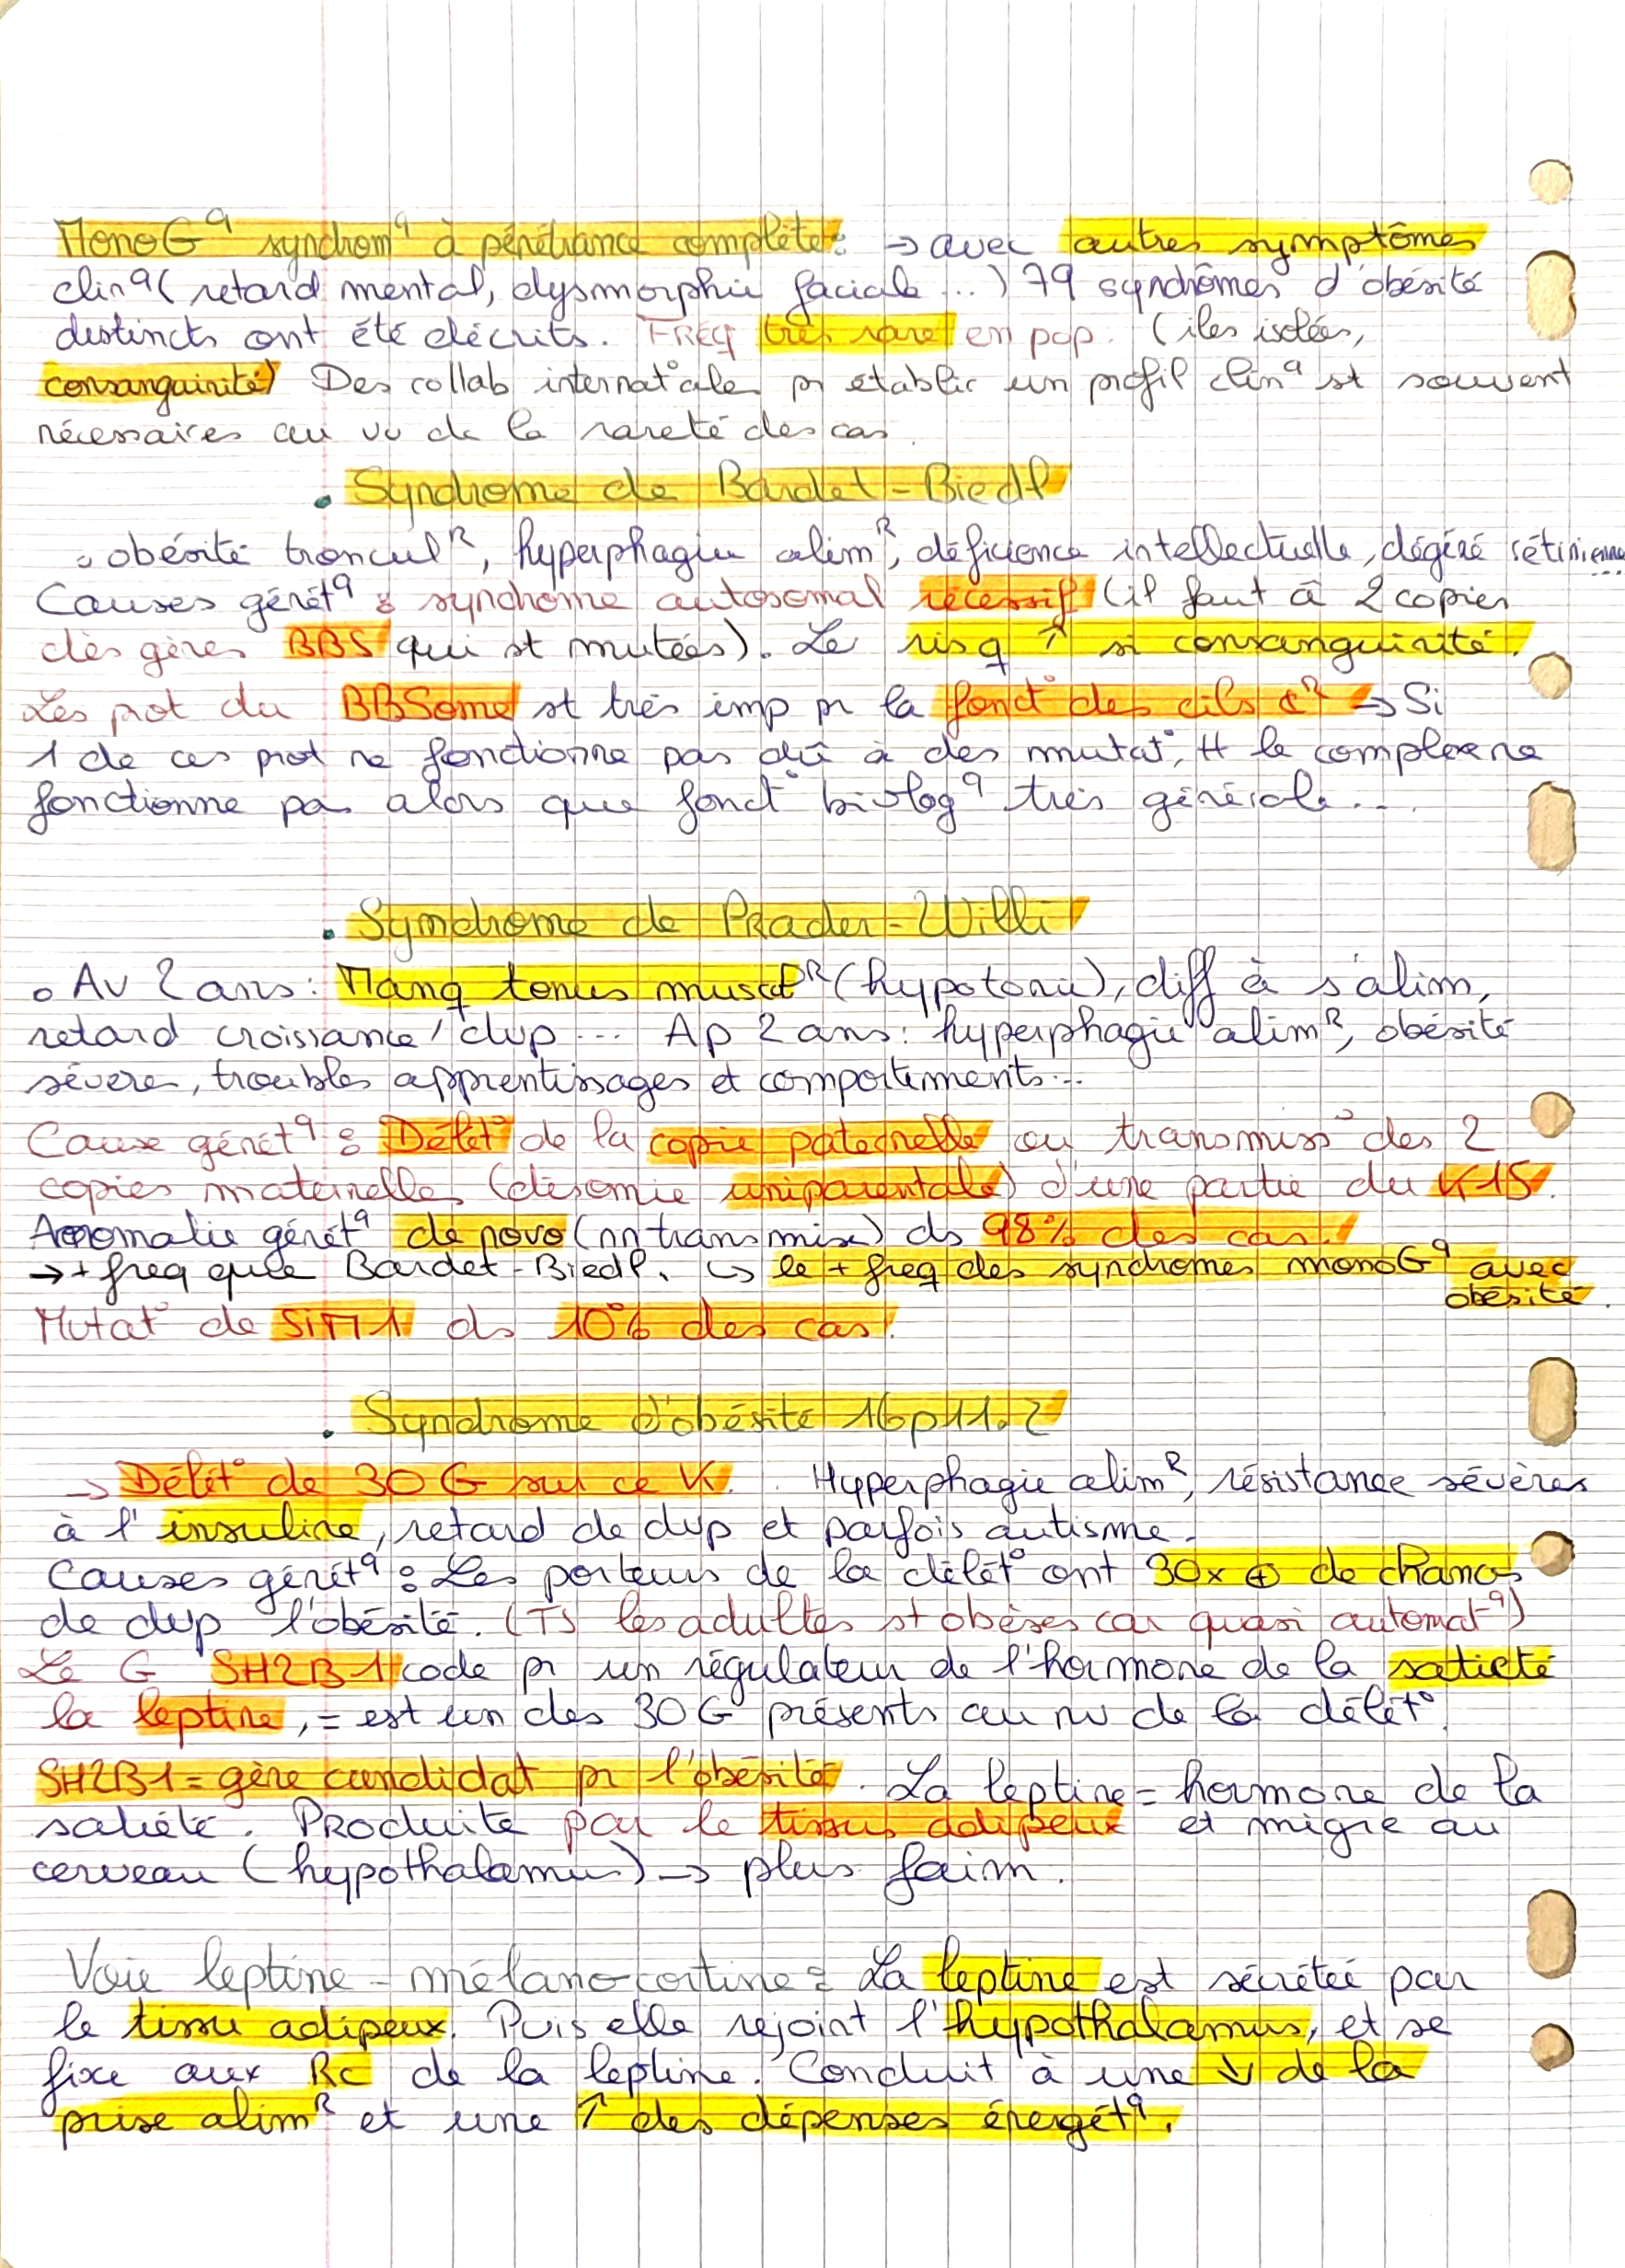 MonoG^q syndrom^q à pénétrance complète : → avec autres symptômes
clin^q (retard mental, dysmorphie faciale ...) 79 syndrômes d'obésité
distincts ont été décrits. FREQ très rare en pop. (îles isolées,
consanguinité) Des collab internat°ales pr établir un profil clin^q st souvent
nécessaires au vu de la rareté des cas.
• Syndrome de Bardet-Biedl
° obésité troncul^R, hyperphagie alim^R, déficience intellectuelle, dégéné rétinienne...
Causes génét^q : syndrome autosomal récessif (il faut à 2 copies
des gènes BBS qui st mutées). Le risq ↑ si consanguinité.
Les prot du BBSome st très imp pr la fonct° des cils c^R → Si
1 de ces prot ne fonctionne pas dû à des mutat°, tt le complexe ne
fonctionne pas alors que fonct° biolog^q très générale...
• Syndrome de Prader-Willi
° Av 2 ans : Manq tonus muscul^R (hypotonie), diff à s'alim,
retard croissance / dvp ... Ap 2 ans : hyperphagie alim^R, obésité
sévère, troubles apprentissages et comportements...
Cause génét^q : Délét° de la copie paternelle ou transmiss° des 2
copies maternelles (disomie uniparentale) d'une partie du K15.
Anomalie génét^q de novo (nn transmise) ds 98% des cas !
→ + freq que Bardet-Biedl. ↳ le + freq des syndromes monoG^q avec
obésité.
Mutat° de SIM1 ds 10% des cas.
• Syndrome d'obésité 16p11.2
→ Délét° de 30 G sur ce K. Hyperphagie alim^R, résistance sévères
à l'insuline, retard de dvp et parfois autisme.
Causes génét^q : Les porteurs de la délét° ont 30x ⊕ de chances
de dvp l'obésité. (TS les adultes st obèses car quasi automat^q)
Le G SH2B1 code pr un régulateur de l'hormone de la satiété
la leptine, = est un des 30 G présents au nv de la délét°.
SH2B1 = gène candidat pr l'obésité. La leptine = hormone de la
satiété. Produite par le tissus adipeux et migre au
cerveau (hypothalamus) → plus faim.
Voie leptine - mélanocortine : La leptine est sécrétée par
le tissu adipeux. Puis elle rejoint l'hypothalamus, et se
fixe aux Rc de la leptine. Conduit à une ↓ de la
prise alim^R et une ↑ des dépenses énergét^q.